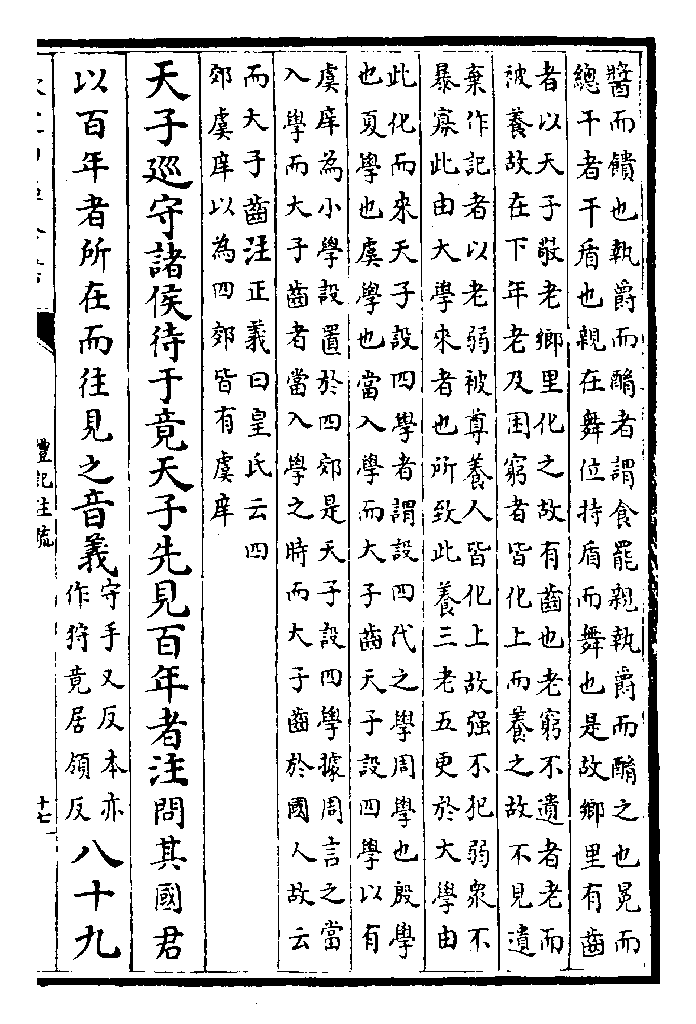 醬而饋也執爵而酳者謂食罷親執爵而酳之也冕而
總干者干盾也親在舞位持盾而舞也是故鄉里有齒
者以天子敬老鄉里化之故有齒也老窮不遺者老而
被養故在下年老及困窮者皆化上而養之故不見遺
棄作記者以老弱被尊養人皆化上故强不犯弱衆不
暴寡此由大學來者也所致此養三老五更於大學由
此化而來天子設四學者謂設四代之學周學也殷學
也夏學也虞學也當入學而大子齒天子設四學以有
虞庠為小學設置於四郊是天子設四學據周言之當
入學而大子齒者當入學之時而大子齒於國人故云
而大子齒注正義曰皇氏云四
郊虞庠以為四郊皆有虞庠
天子巡守諸侯待于竟天子先見百年者注問其國君
以百年者所在而往見之音義守手又反本亦作狩竟居領反八十九
禮記注疏
十七